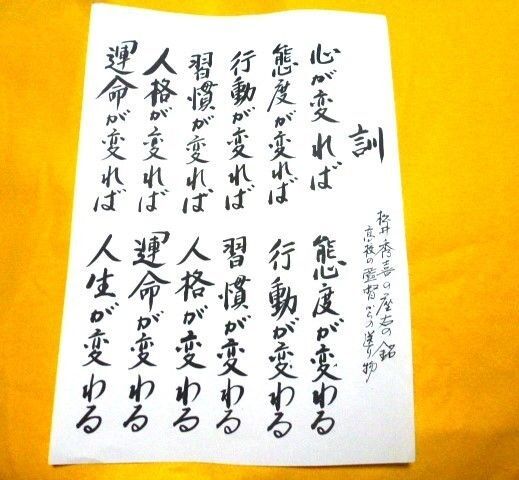 訓
松井秀喜の座右の銘
高校の監督からの送り物
心が変れば 態度が変わる
態度が変れば 行動が変わる
行動が変れば 習慣が変わる
習慣が変れば 人格が変わる
人格が変れば 運命が変わる
運命が変れば 人生が変わる